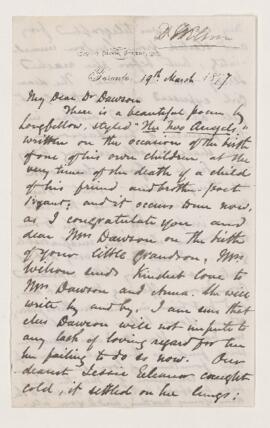 Dr Wilson
Toronto, 19th March 1877
My Dear Dr Dawson
There is a beautiful poem by
Longfellow, styled "The Two Angels,"
written on the occasion of the birth
of one of his own children at the
very time of the death of a child
of his friend and brother poet
and it occurs to me now,
as I congratulate you and
dear Mrs Dawson on the birth
of your little grandson. Mrs
Wilson sends kindest love to
Mrs Dawson and Anna. She will
write by and by. I am sure that
Mrs Dawson will not impute to
any lack of loving regard for her
failing to do so now. Our
dearest Jessie Eleanor caught
cold, it settled on her lungs;